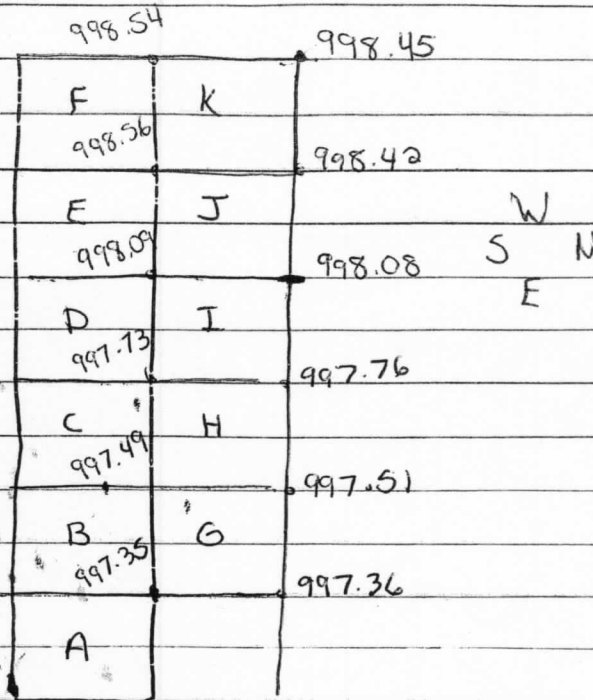 998.54 998.45
F K
998.56 998.42
E J W
S N
998.09 998.08
E
D I
997.73 997.76
C H
997.49 997.51
B G
997.35 997.36
A